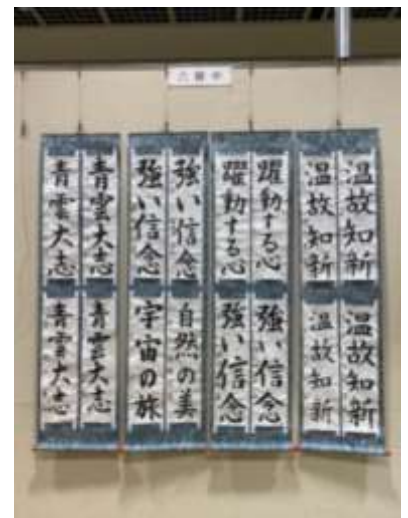 温故知新
温故知新
躍動する心
躍動する心
強い信念
強い信念
青雲大志
青雲大志
温故知新
温故知新
強い信念
強い信念
自然の美
宇宙の旅
青雲大志
青雲大志